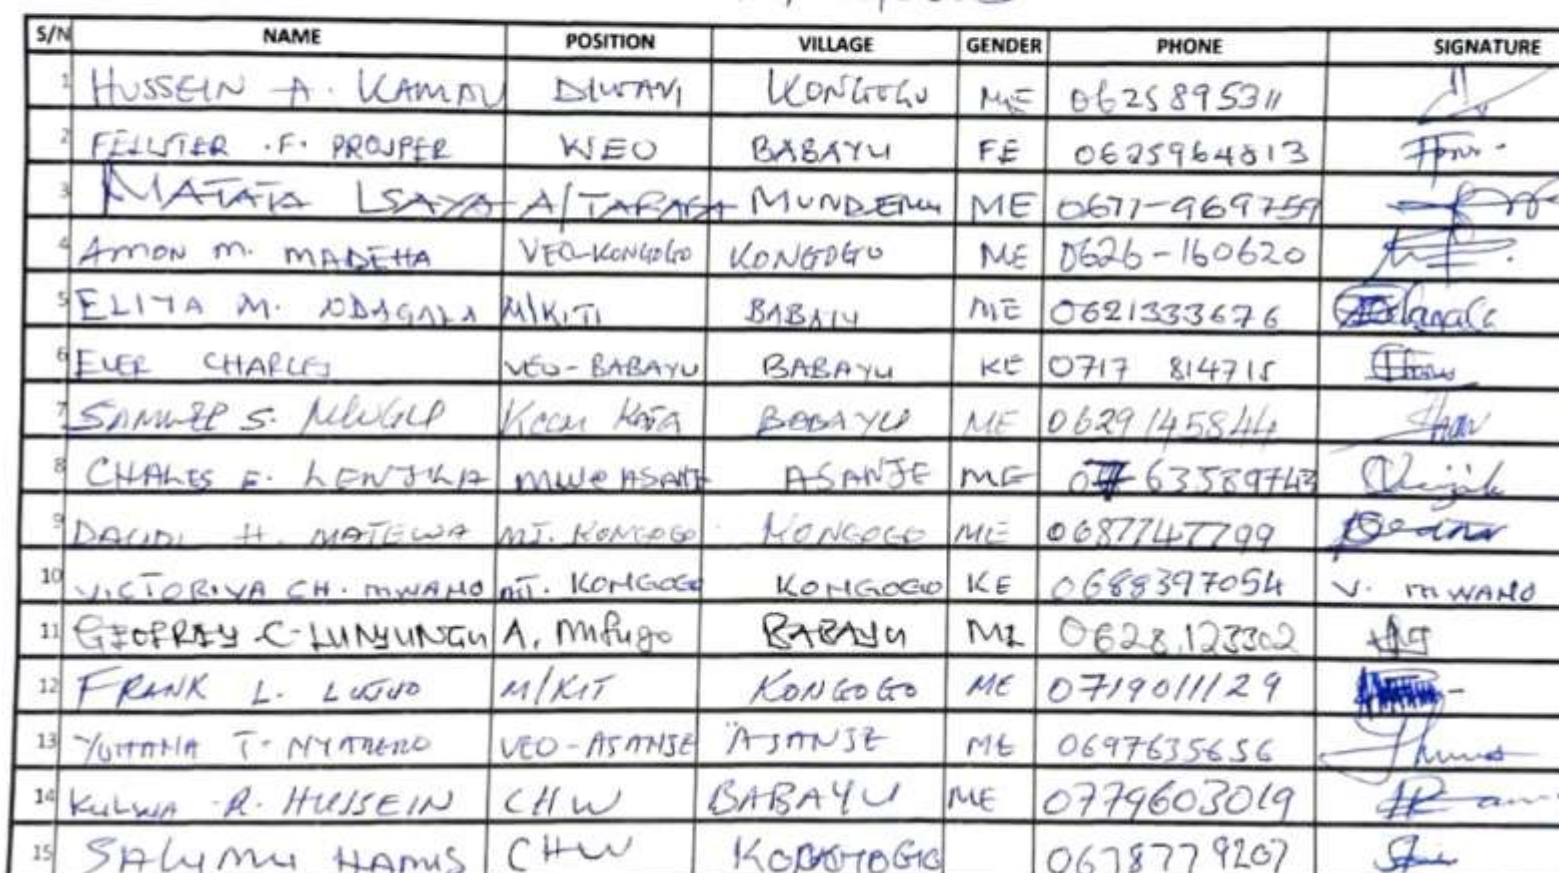 S/N NAME POSITION VILLAGE GENDER PHONE SIGNATURE
1 HUSSEIN A. KAMAU DIWANI KONGOGO ME 0625895311
2 FELISTER .F. PROSPER WEO BABAYU FE 0625964813
3 MATATA ISAYA A/TARAFA MUNDEMU ME 0677-969759
4 AMON M. MADEHA VEO-KONGOGO KONGOGO ME 0626-160620
5 ELIYA M. NDAGALA M/KITI BABAYU ME 0621333676
6 EVER CHARLES VEO-BABAYU BABAYU KE 0717 814715
7 SAMWEL S. KATA BABAYU ME 0629145844
8 CHALES E. ASANJE ME
9 DAUDI H. MATEWA MJ. KONGOGO KONGOGO ME 0687747799
10 VICTORIYA CH. MWAMO MJ. KONGOGO KONGOGO KE 0688397054 V. MWAMO
11 GEOFREY C. LUNYUNGU A. Mifugo BABAYU ME 0628.123302
12 FRANK L. M/KIT KONGOGO ME 0719011129
13 YOHANA T. VEO-ASANJE ASANJE ME 0697635656
14 KULWA R. HUSSEIN CHW BABAYU ME 0779603019
15 SALUMU HAMIS CHW 0678779207